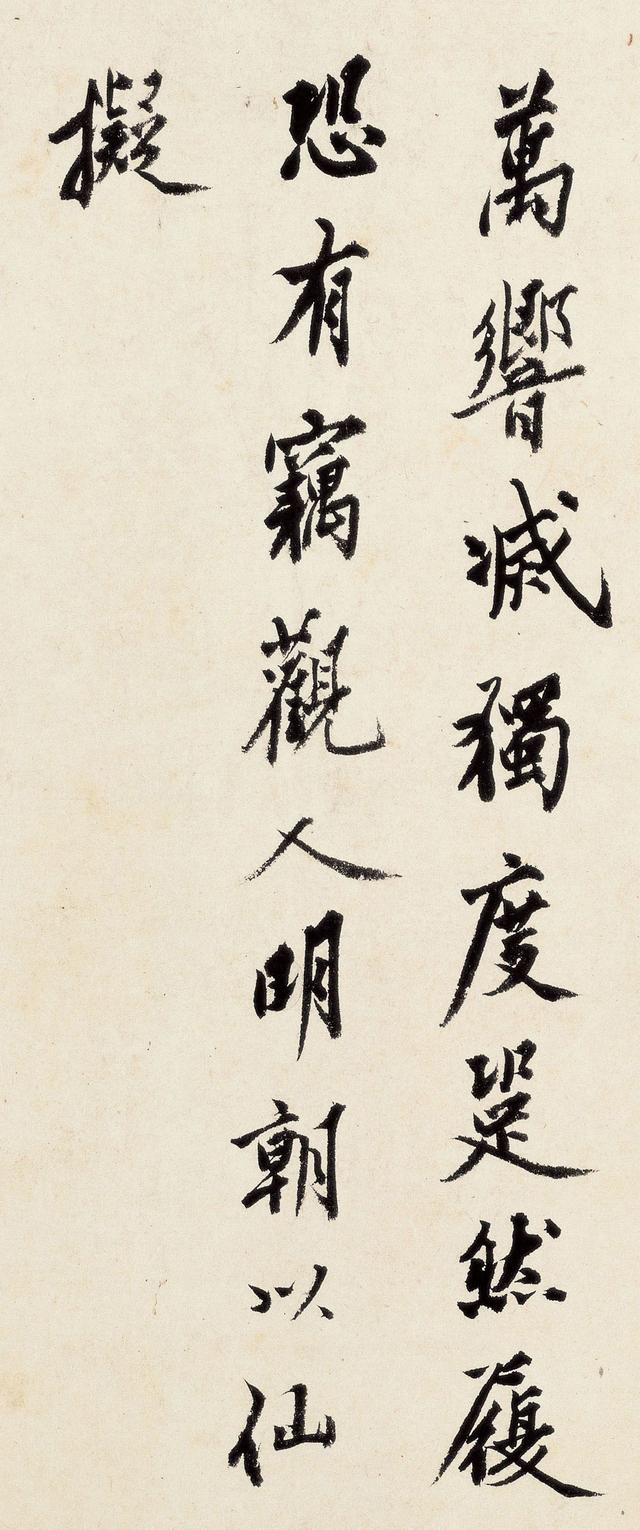 萬響滅獨度跫然履
恐有竊觀人明朝以仙
擬